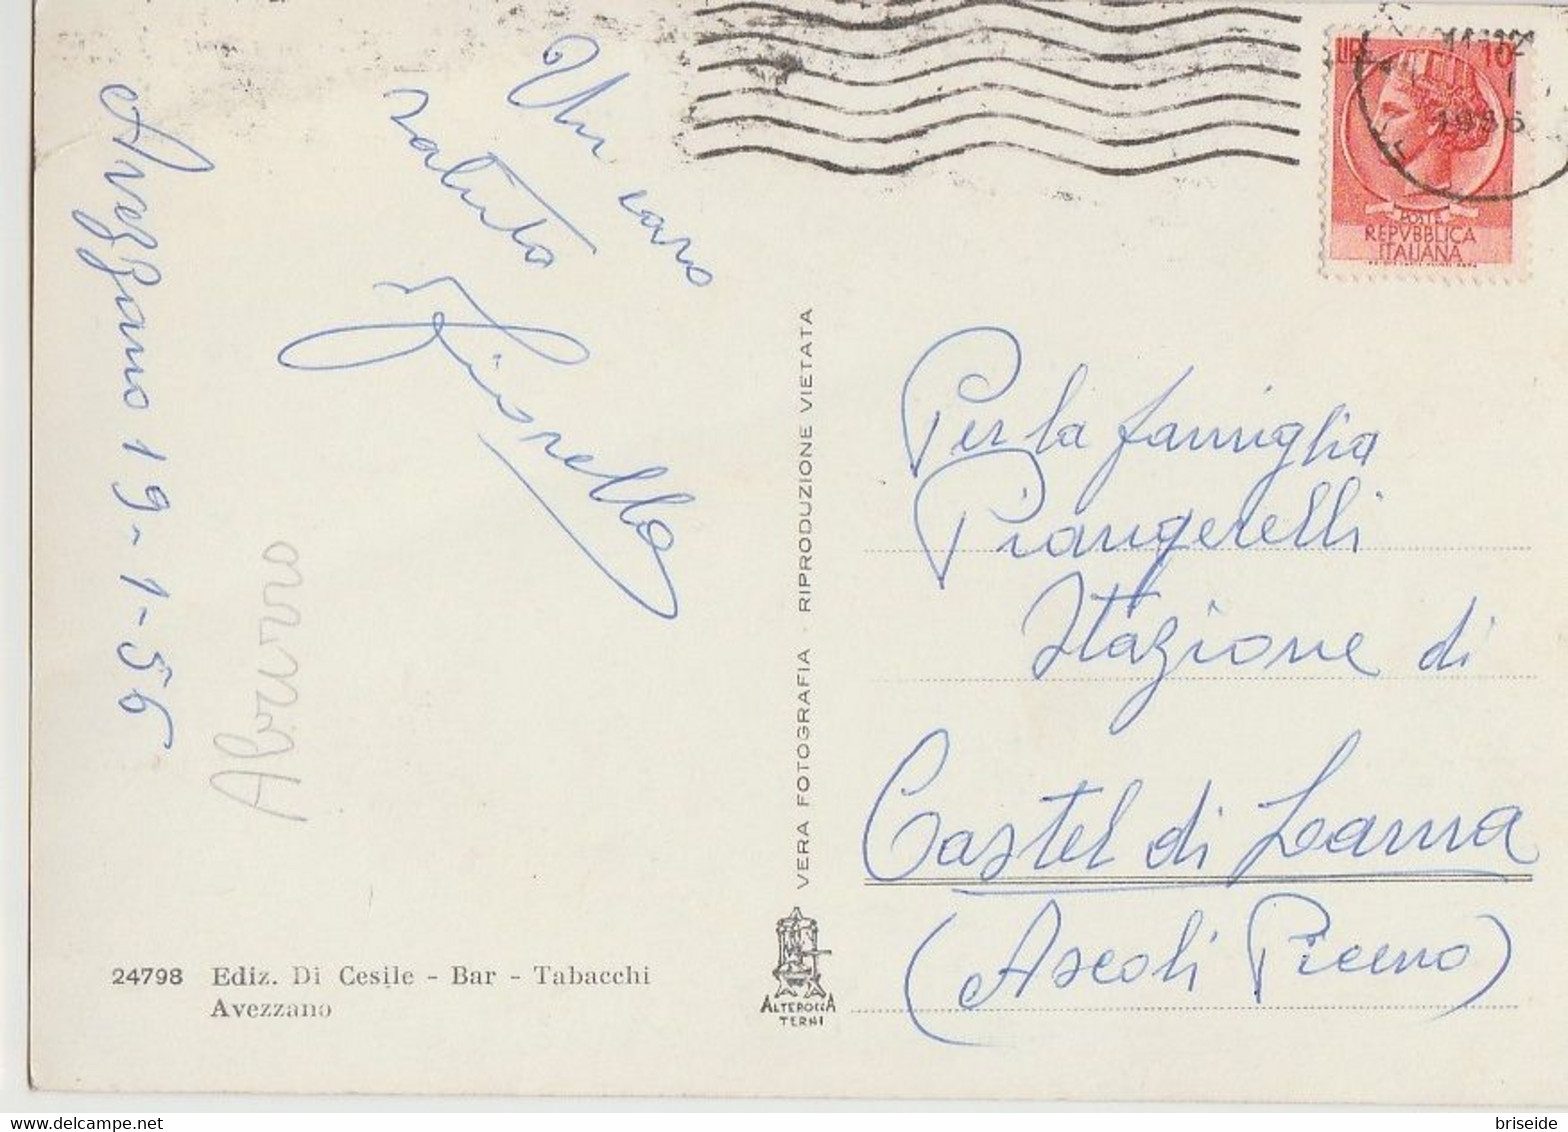 Avezzano 19-1-56
Un caro
saluto
Abruzzo
24798 Ediz. Di Cesile - Bar - Tabacchi
Avezzano
VERA FOTOGRAFIA - RIPRODUZIONE VIETATA
ALTEROCCA
TERNI
LIRE 10
1956
POSTE
REPVBBLICA
ITALIANA
Per la famiglia
Piangerelli
Stazione di
Castel di Lama
(Ascoli Piceno)
briseide